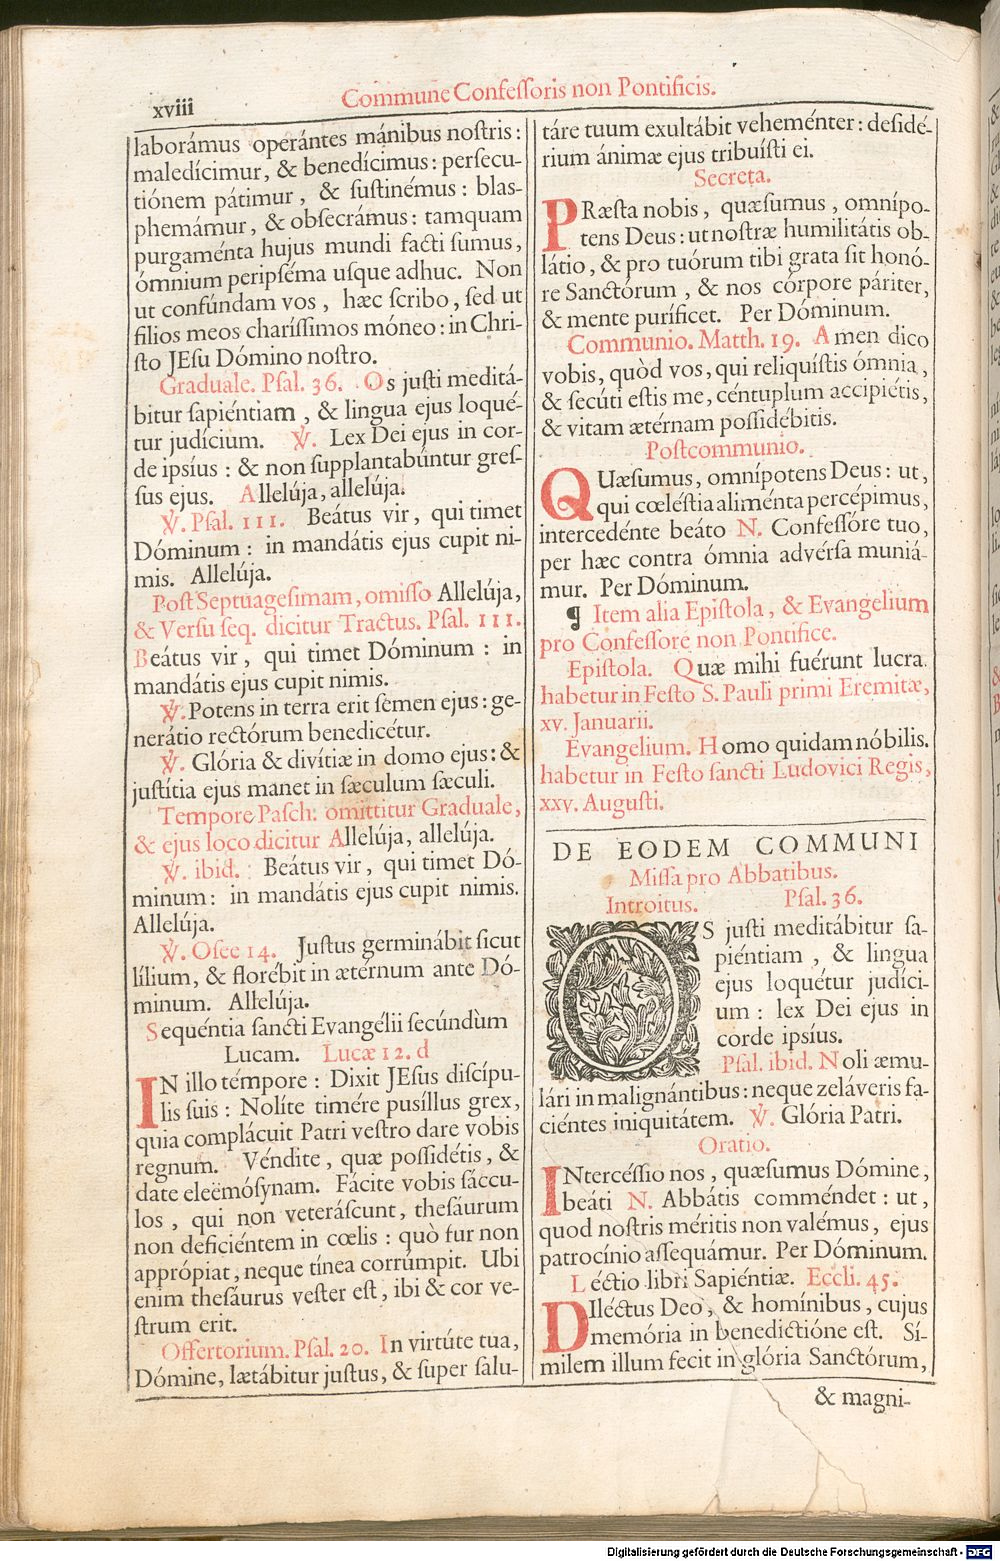 xviii
Commune Confeſſoris non Pontificis.
laborámus operántes mánibus noſtris:
maledícimur, & benedícimus: perſecu-
tiónem pátimur, & ſuſtinémus: blas-
phemámur, & obſecrámus: tamquam
purgaménta hujus mundi facti ſumus,
ómnium peripſéma uſque adhuc. Non
ut confúndam vos, hæc ſcribo, ſed ut
filios meos charíſſimos móneo: in Chri-
ſto JEſu Dómino noſtro.
Graduale. Pſal. 36. Os juſti meditá-
bitur ſapiéntiam, & lingua ejus loqué-
tur judícium. ℣. Lex Dei ejus in cor-
de ipsíus: & non ſupplantabúntur greſ-
ſus ejus. Allelúja, allelúja.
℣. Pſal. 111. Beátus vir, qui timet
Dóminum: in mandátis ejus cupit ni-
mis. Allelúja.
Poſt Septuageſimam, omiſſo Allelúja,
& Verſu ſeq. dicitur Tractus. Pſal. 111.
Beátus vir, qui timet Dóminum: in
mandátis ejus cupit nimis.
℣. Potens in terra erit ſemen ejus: ge-
nerátio rectórum benedicétur.
℣. Glória & divítiæ in domo ejus: &
juſtítia ejus manet in ſæculum ſæculi.
Tempore Paſch: omittitur Graduale,
& ejus loco dicitur Allelúja, allelúja.
℣. ibid. Beátus vir, qui timet Dó-
minum: in mandátis ejus cupit nimis.
Allelúja.
℣. Oſee 14. Juſtus germinábit ſicut
lílium, & florébit in æternum ante Dó-
minum. Allelúja.
Sequéntia ſancti Evangélii ſecúndùm
Lucam. Lucæ 12. d
IN illo témpore: Dixit JEſus diſcípu-
lis ſuis: Nolíte timére puſíllus grex,
quia complácuit Patri veſtro dare vobis
regnum. Véndite, quæ poſſidétis, &
date eleëmóſynam. Fácite vobis ſáccu-
los, qui non veteráſcunt, theſáurum
non deficiéntem in cœlis: quò fur non
apprópiat, neque tínea corrúmpit. Ubi
enim theſáurus veſter eſt, ibi & cor ve-
ſtrum erit.
Offertorium. Pſal. 20. In virtúte tua,
Dómine, lætábitur juſtus, & ſuper ſalu-
táre tuum exultábit veheménter: deſidé-
rium ánimæ ejus tribuíſti ei.
Secreta.
PRæſta nobis, quæſumus, omnípo-
tens Deus: ut noſtræ humilitátis ob-
látio, & pro tuórum tibi grata ſit honó-
re Sanctórum, & nos córpore páriter,
& mente puríficet. Per Dóminum.
Communio. Matth. 19. Amen dico
vobis, quòd vos, qui reliquíſtis ómnia,
& ſecúti eſtis me, céntuplum accipiétis,
& vitam ætérnam poſſidébitis.
Poſtcommunio.
QUæſumus, omnípotens Deus: ut,
qui cœléſtia aliménta percépimus,
intercedénte beáto N. Confeſſóre tuo,
per hæc contra ómnia advérſa muniá-
mur. Per Dóminum.
¶ Item alia Epiſtola, & Evangelium
pro Confeſſore non Pontifice.
Epiſtola. Quæ mihi fuérunt lucra.
habetur in Feſto S. Pauli primi Eremitæ,
xv. Januarii.
Evangelium. Homo quidam nóbilis.
habetur in Feſto ſancti Ludovici Regis,
xxv. Auguſti.
DE EODEM COMMUNI
Miſſa pro Abbatibus.
Introitus. Pſal. 36.
OS juſti meditábitur ſa-
piéntiam, & lingua
ejus loquétur judíci-
um: lex Dei ejus in
corde ipsíus.
Pſal. ibid. Noli æmu-
lári in malignántibus: neque zeláveris fa-
ciéntes iniquitátem. ℣. Glória Patri.
Oratio.
INtercéſſio nos, quæſumus Dómine,
beáti N. Abbátis comméndet: ut,
quod noſtris méritis non valémus, ejus
patrocínio aſſequámur. Per Dóminum.
Léctio libri Sapiéntiæ. Eccli. 45.
DIléctus Deo, & homínibus, cujus
memória in benedictióne eſt. Sí-
milem illum fecit in glória Sanctórum,
& magni-
Digitalisierung gefördert durch die Deutsche Forschungsgemeinschaft - DFG